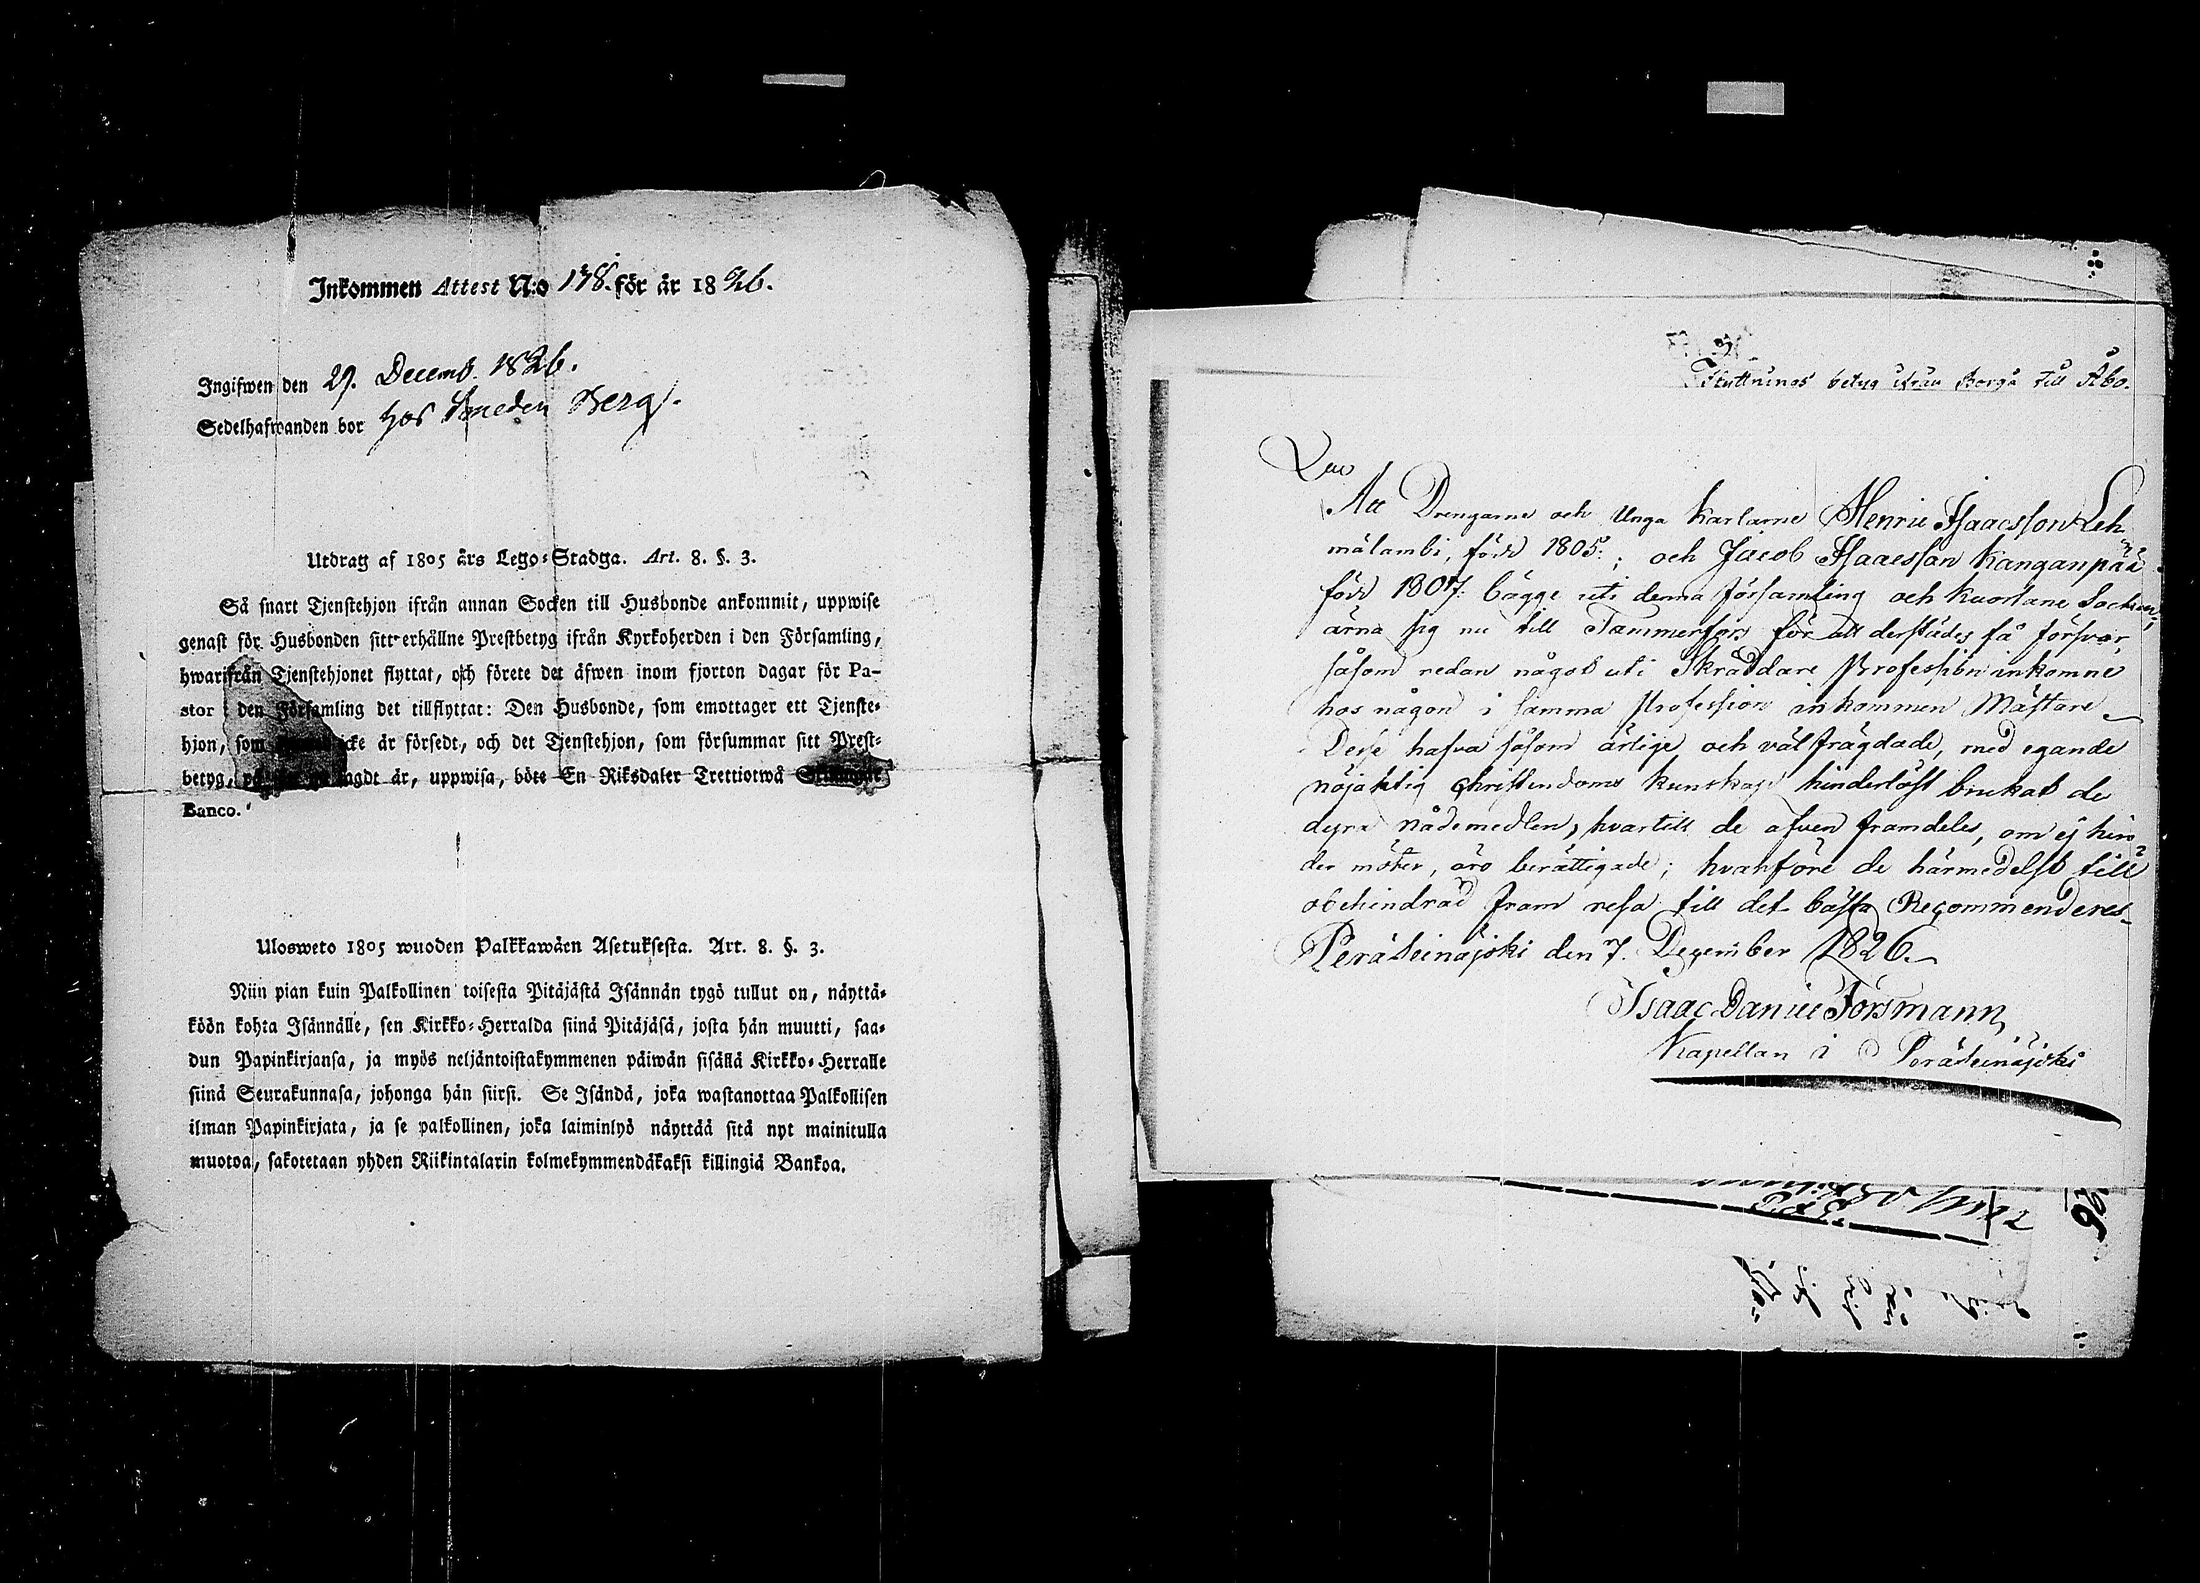 Inkommen Attest N:o 178. för år 1826.
Ingifwen den 29. Decemb. 1826.
Sedelhafwanden bor hos Smeden Berg.
Utdrag af 1805 års Lego-Stadga. Art. 8. §. 3.
Så snart Tjenstehjon ifrån annan Socken till Husbonde ankommit, uppwise
genast för Husbonden sitt erhållne Prestbetyg ifrån Kyrkoherden i den Församling,
hwarifrån Tjenstehjonet flyttat, och förete det äfwen inom fjorton dagar för Pa-
stor i den Församling det tillflyttat: Den Husbonde, som emottager ett Tjenste-
hjon, som icke är försedt, och det Tjenstehjon, som försummar sitt Prest-
betyg, sagdt är, uppwisa, böte En Riksdaler Trettiotwå
Banco.
Ulosweto 1805 wuoden Palkkawäen Asetuksesta. Art. 8. §. 3.
Niin pian kuin Palkollinen toisesta Pitäjästä Isännän tygö tullut on, näyttä-
köön kohta Isännälle, sen Kirkko-Herralda siinä Pitäjäsä, josta hän muutti, saa-
dun Papinkirjansa, ja myös neljäntoistakymmenen päiwän sisällä Kirkko-Herralle
siinä Seurakunnasa, johonga hän siirsi. Se Isändä, joka wastanottaa Palkollisen
ilman Papinkirjata, ja se palkollinen, joka laiminlyö näyttää sitä nyt mainitulla
muotoa, sakotetaan yhden Riikintalarin kolmekymmendäkaksi killingiä Bankoa.
Flyttnings betyg ifrån Borgå till Åbo.
Att Drengarne och Unga Karlarne Henric Isaacsson Leh-
mälambi, född 1805.; och Jacob Isaacsson Kanganpää
född 1807: bägge uti denna församling och Kuortane Socken,
ärna sig nu till Tammerfors för att derstädes få försvar,
såsom redan något uti Skräddare Profession inkomne
hos någon i samma Profession inkommen Mästare
Desse hafva såsom ärlige och väl frägdade, med egande
nöjaktig Christendoms kunskap hinderlöst brukat de
dyra Nådemedlen, hvartill de afven framdeles, om ej hin-
der möter, äro berättigade; hvarföre de härmedelst till
obehindrad fram resa till det bästa Recommenderes
Peräseinäjoki den 7. December 1826.
Isaac Daniel Forsmann
Kapellan i Peräseinäjoki